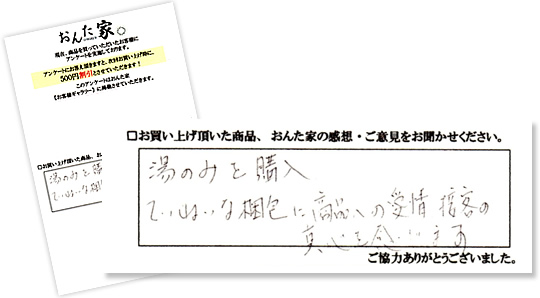 おんた家
現在、商品を買っていただいたお客様に
アンケートを実施しております。
アンケートにお答え頂きますと、次回お買い上げ時に、
500円割引とさせていただきます！
このアンケートはおんた家
《お客様ギャラリー》に掲載させていただきます。
□お買い上げ頂いた商品、お
湯のみを購
ていねいな梱
□お買い上げ頂いた商品、おんた家の感想・ご意見をお聞かせください。
湯のみを購入
ていねいな梱包に商品への愛情 接客の
真心を感じます
ご協力ありがとうございました。